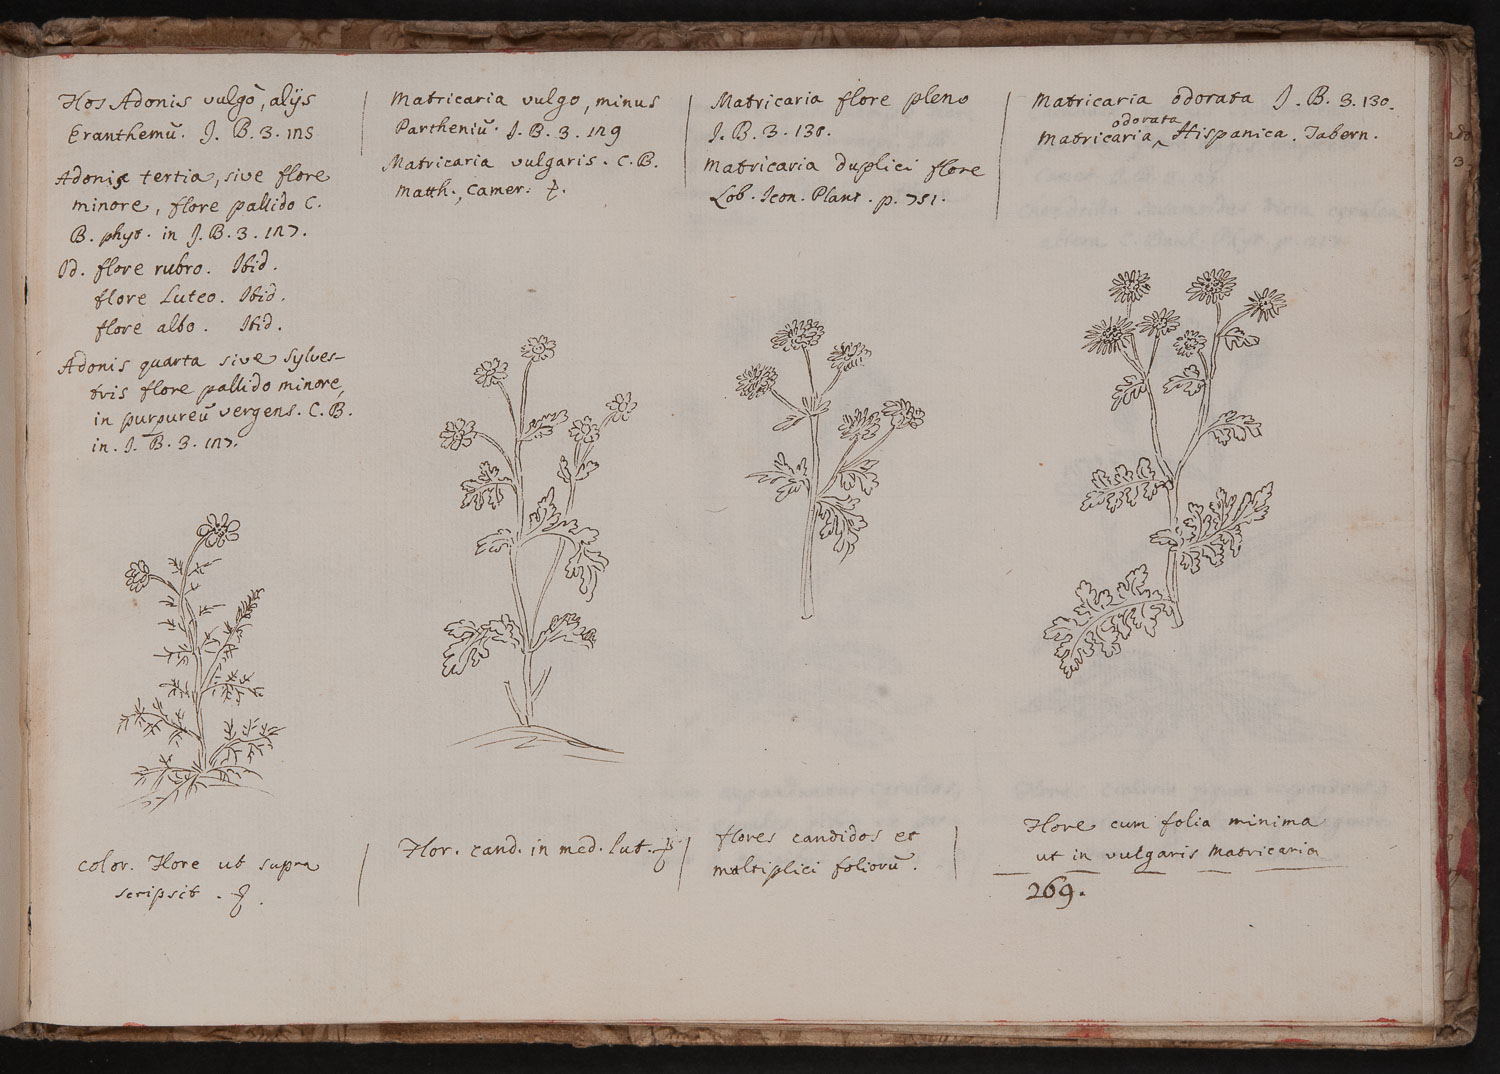 Flos Adonis vulgò, alijs
Eranthemū. J. B. 3. 125
Adonis tertia, sive flore
minore, flore pallido C.
B. phyt. in J. B. 3. 127.
Id. flore rubro. Ibid.
flore Luteo. Ibid.
flore albo. Ibid.
Adonis quarta sive sylves-
tris flore pallido minore,
in purpureū vergens. C. B.
in. J. B. 3. 127.
color. Flore ut supra
scripsit.
Matricaria vulgo, minus
Partheniū. J. B. 3. 129
Matricaria vulgaris. C. B.
Matth., Camer:
Flor. cand. in med. lut.
Matricaria flore pleno
J. B. 3. 130.
Matricaria duplici flore
Lob. Icon. Plant. p. 751.
flores candidos et
multiplici foliorū.
Matricaria odorata J. B. 3. 130.
Matricaria odorata Hispanica. Tabern.
Flore cum folia minima
ut in vulgaris Matricaria
269.